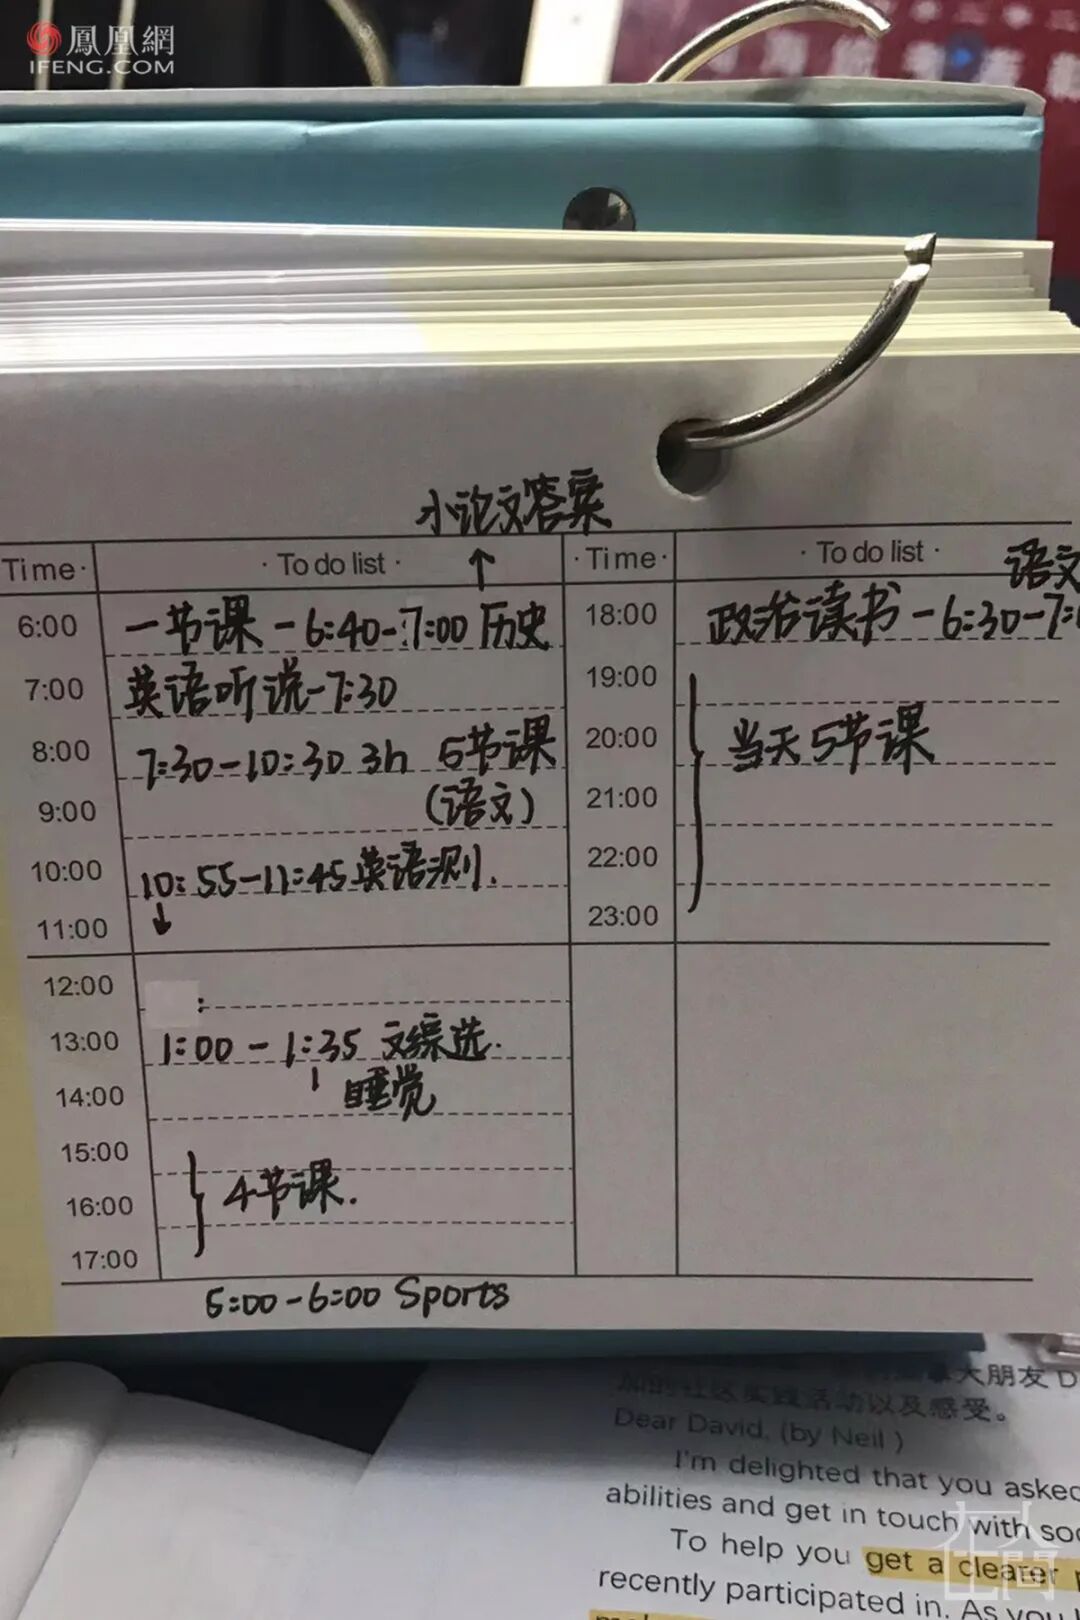 鳳凰網
IFENG.COM
小论文答案
↑
Time · · To do list · · Time · · To do list ·
语文
6:00 一节课-6:40-7:00 历史
7:00 英语听说-7:30
8:00 7:30-10:30 3h 5节课
9:00 (语文)
10:00 10:55-11:45英语测.
11:00 ↓
12:00 :
13:00 1:00-1:35 文综选.
14:00 睡觉
15:00
16:00 4节课.
17:00
5:00-6:00 Sports
18:00 政治读书-6:30-7:
19:00
20:00 当天5节课
21:00
22:00
23:00
大朋友D
加的社区实践活动以及感受。
Dear David, (by Neil )
I'm delighted that you asked
abilities and get in touch with soc
To help you get a clearer p
recently participated in. As you
在人间